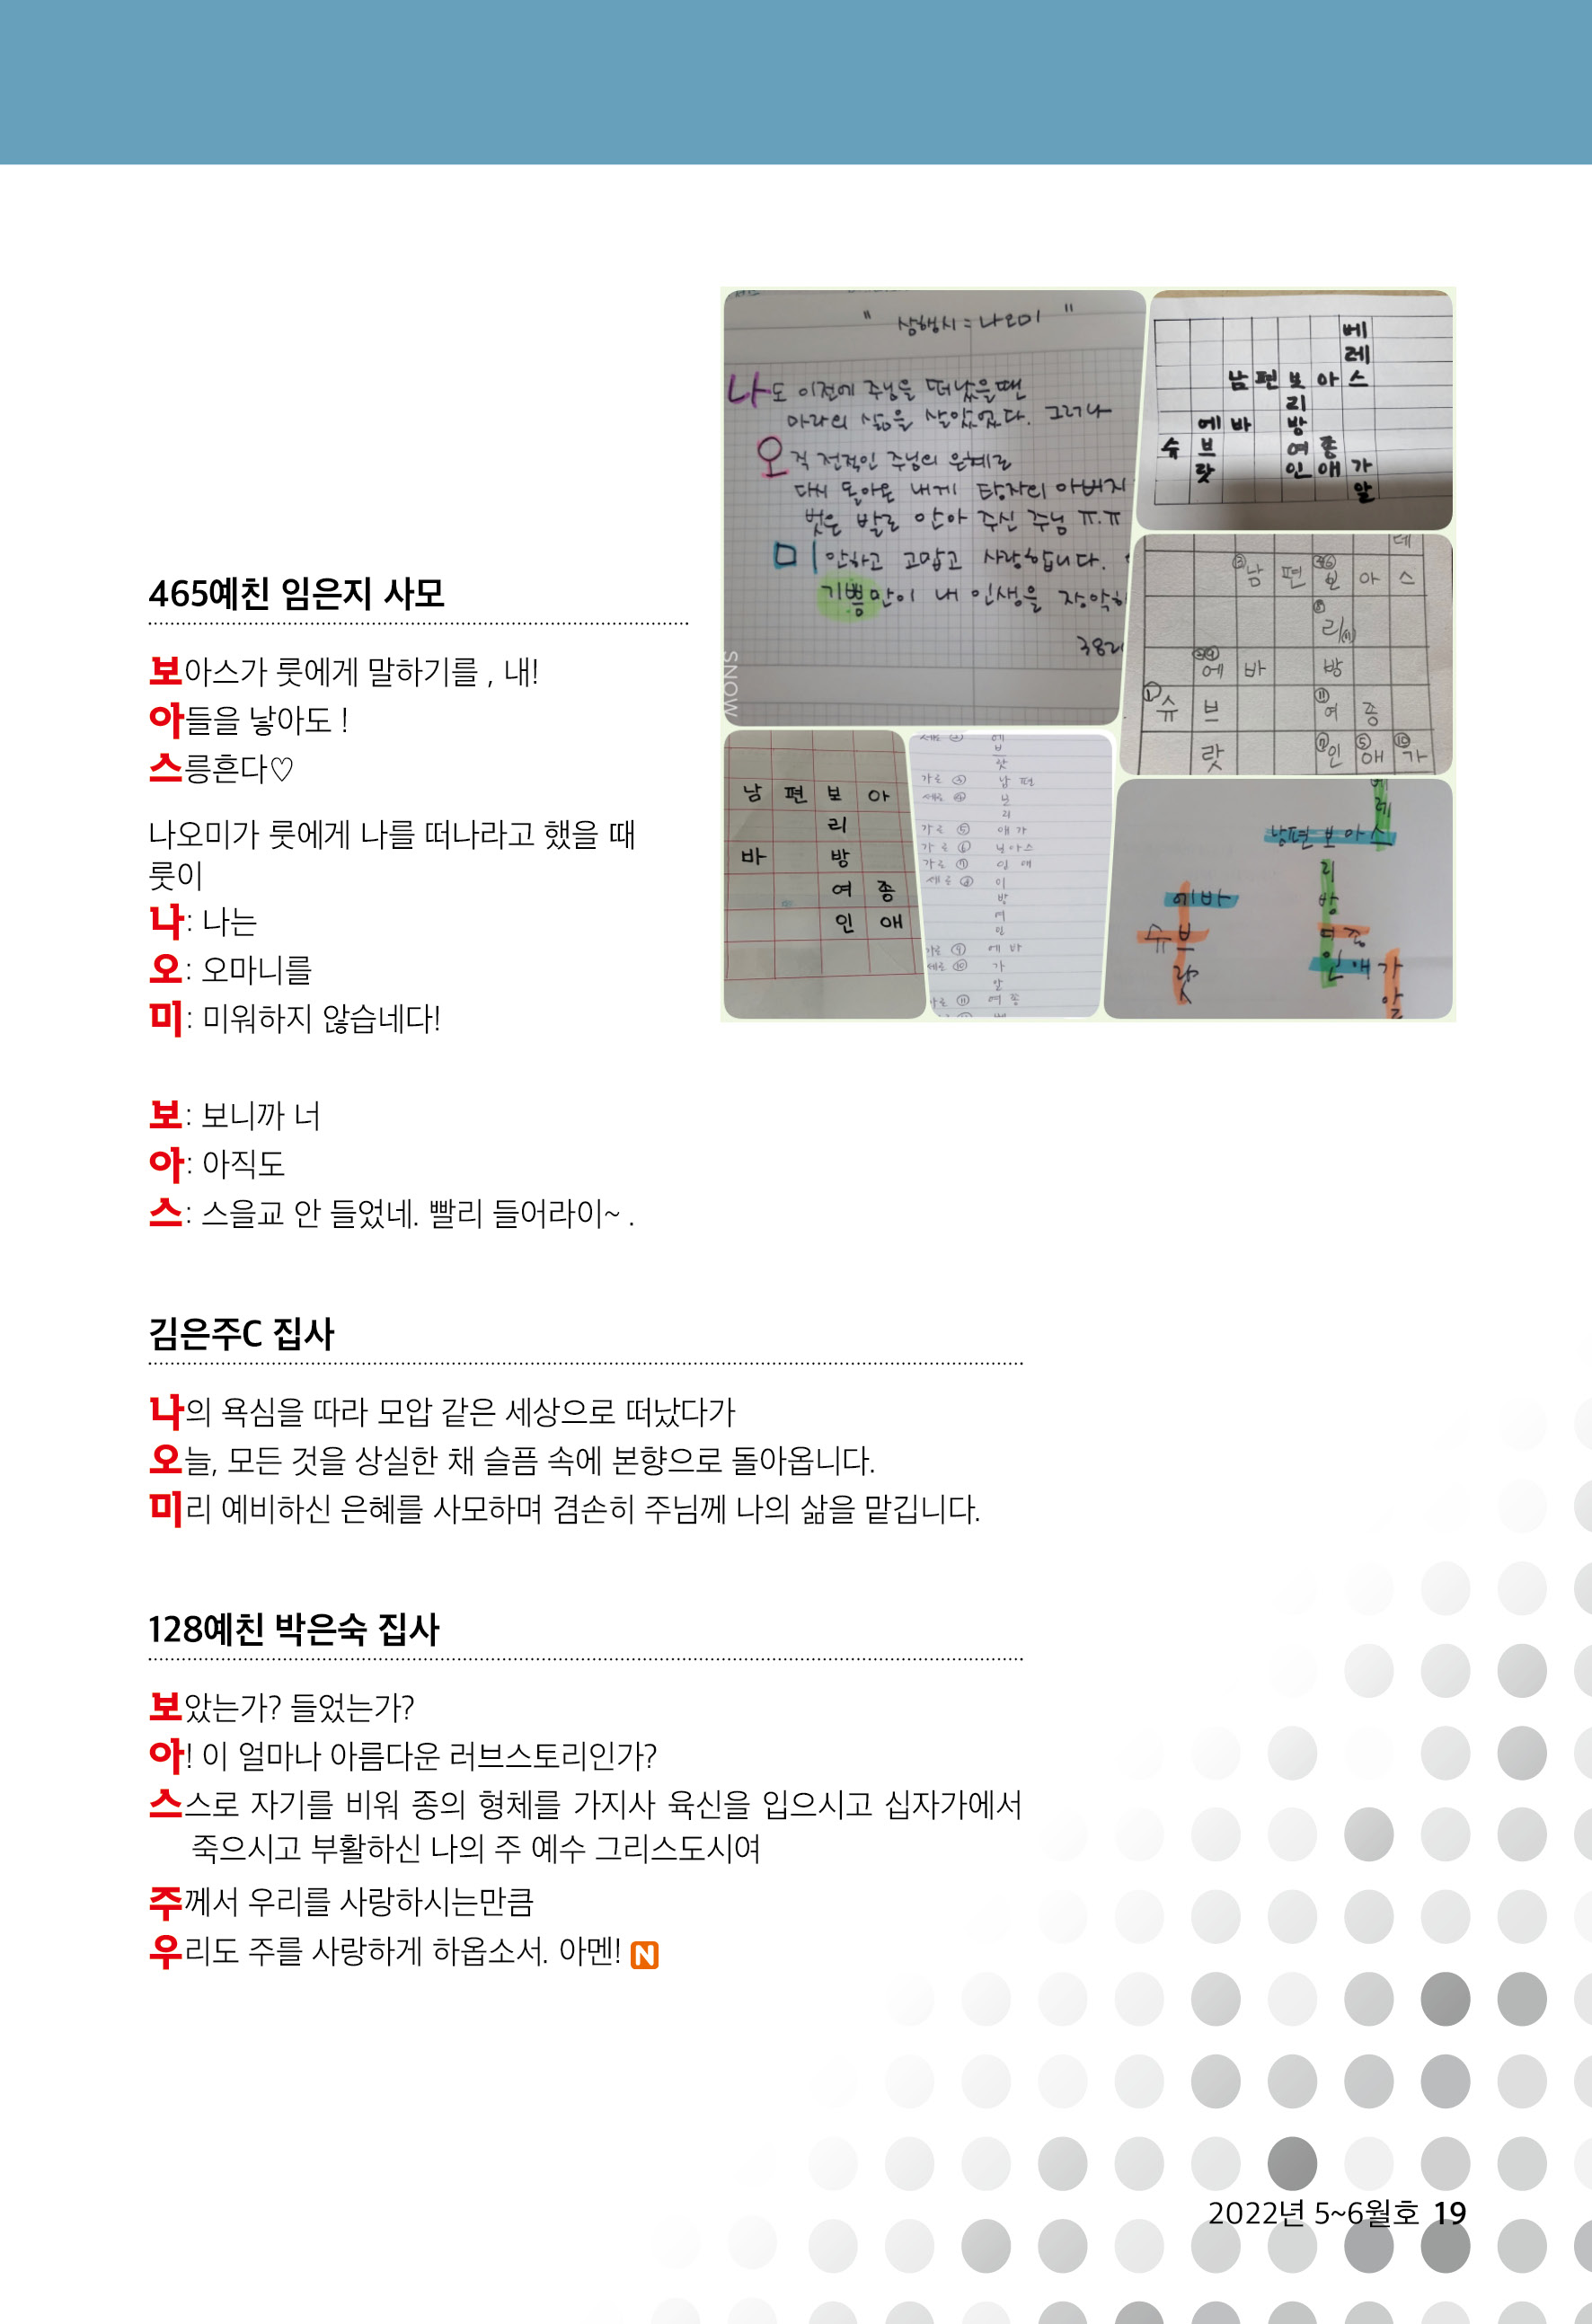 465예친 임은지 사모
보아스가 룻에게 말하기를 , 내!
아들을 낳아도 !
스릉흔다♡
나오미가 룻에게 나를 떠나라고 했을 때
룻이
나: 나는
오: 오마니를
미: 미워하지 않습네다!
보: 보니까 너
아: 아직도
스: 스을교 안 들었네. 빨리 들어라이~ .
" 삼행시 = 나오미 "
나도 이전에 주님을 떠났을땐
마라의 삶을 살았었다. 그러나
오직 전적인 주님의 은혜로
다시 돌아온 내게 탕자의 아버지
벗은 발로 안아 주신 주님 ㅠ.ㅠ
미안하고 고맙고 사랑합니다.
기쁨만이 내 인생을 장악하
382
SNOW
베
레
남 편 보 아 스
리
에 바 방
슈 브 여 종
랏 인 애 가
알
레
② 남 편 보 아 스
리
에 바 방
① 슈 브 ⑪ 여 종
랏 ⑦ 인 ⑤ 애 ⑩ 가
남 편 보 아
리
바 방
여 종
인 애
브
랏
가로 남 편
세로
리
가로 ⑤ 애 가
가로 ⑥ 아스
가로 ⑦ 인 애
세로
방
여
인
가로 ⑨ 에 바
세로 ⑩ 가
알
가로 ⑪ 여 종
베
레
남편 보 아 스
리
에바 방
슈브 여 종
랏 인 애 가
알
김은주C 집사
나의 욕심을 따라 모압 같은 세상으로 떠났다가
오늘, 모든 것을 상실한 채 슬픔 속에 본향으로 돌아옵니다.
미리 예비하신 은혜를 사모하며 겸손히 주님께 나의 삶을 맡깁니다.
128예친 박은숙 집사
보았는가? 들었는가?
아! 이 얼마나 아름다운 러브스토리인가?
스스로 자기를 비워 종의 형체를 가지사 육신을 입으시고 십자가에서
죽으시고 부활하신 나의 주 예수 그리스도시여
주께서 우리를 사랑하시는만큼
우리도 주를 사랑하게 하옵소서. 아멘! N
2022년 5~6월호 19